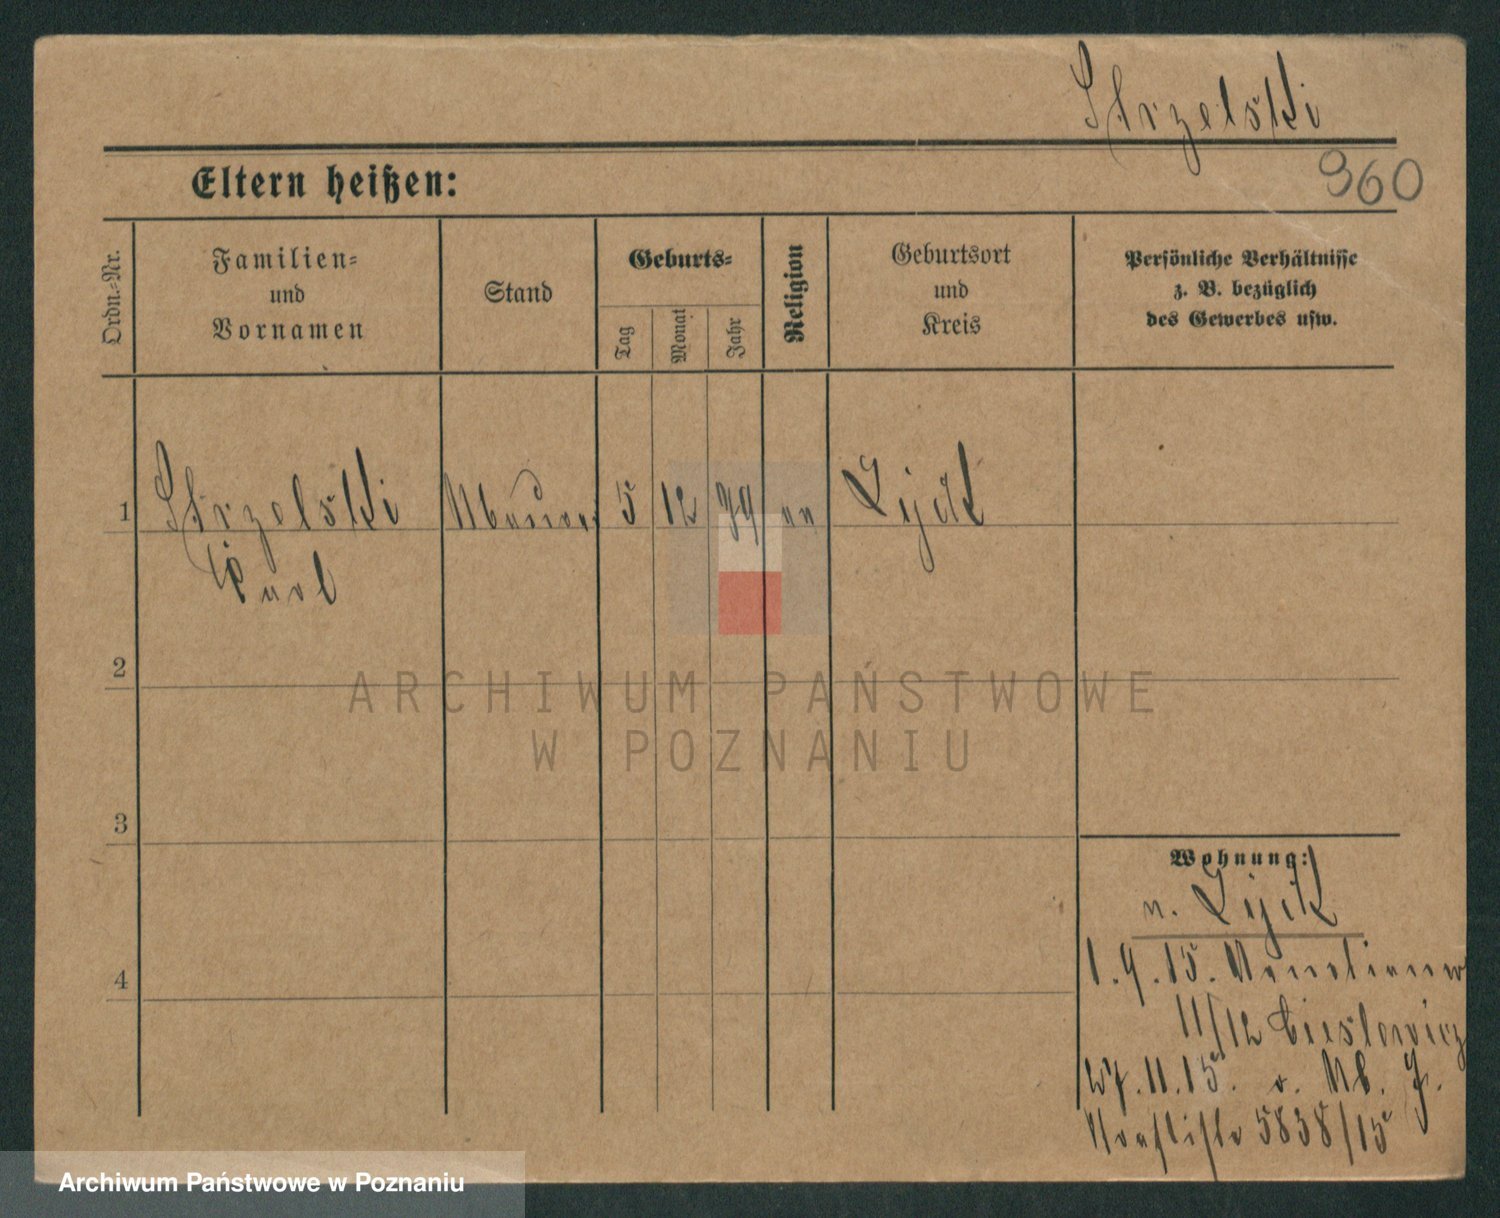 Strzelski
960
Eltern heißen:
Ordn.=Nr.
Familien=
und
Vornamen
Stand
Geburts=
Tag
Monat
Jahr
Religion
Geburtsort
und
Kreis
Persönliche Verhältnisse
z. B. bezüglich
des Gewerbes usw.
1 Strzelski 5 12 79 Lyck
Karl
2
3
4
Wohnung:
n. Lyck
1.9.15.
11/12
27.11.15. v.
5838/15
ARCHIWUM PAŃSTWOWE
W POZNANIU
Archiwum Państwowe w Poznaniu